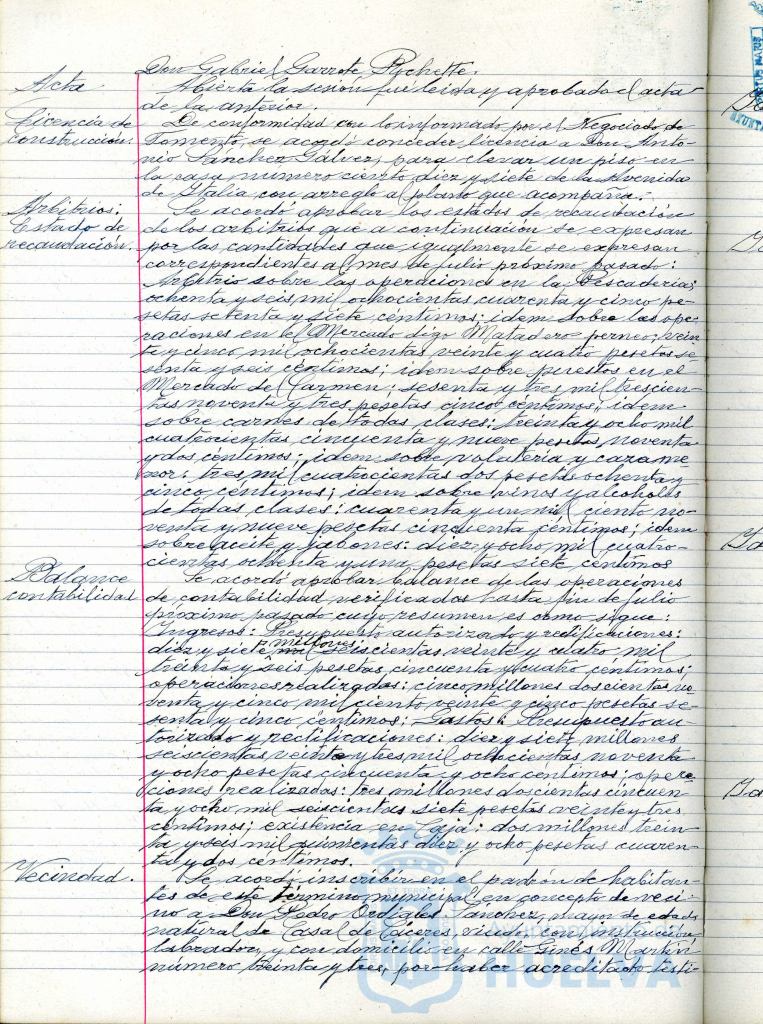 Don Gabriel Garrote Pychette.
Acta
Abierta la sesión fué leida y aprobada el acta
de la anterior.
Licencia de
construcción.
De conformidad con lo informado por el Negociado de
Fomento, se acordó conceder licencia a Don Anto-
nio Sánchez Gálvez, para elevar un piso en
la casa número ciento diez y siete de la Avenida
de Italia con arreglo al plano que acompaña.
Arbitrios:
Estado de
recaudación.
Se acordó aprobar los estados de recaudación
de los arbitrios que a continuación se expresan
por las cantidades que igualmente se expresan
correspondientes al mes de julio próximo pasado:
Arbitrio sobre las operaciones en la Pescaderia;
ochenta y seis mil ochocientas cuarenta y cinco pe-
setas setenta y siete céntimos; idem sobre las ope-
raciones en el Mercado digo Matadero; vein-
te y cinco mil ochocientas veinte y cuatro pesetas se-
senta y seis céntimos; idem sobre puestos en el
Mercado del Carmen; sesenta y tres mil trescien-
tas noventa y tres pesetas cinco céntimos; idem
sobre carnes de todas clases: treinta y ocho mil
cuatrocientas cincuenta y nueve pesetas noventa
y dos céntimos; idem sobre volateria y caza me-
nor: tres mil cuatrocientas dos pesetas ochenta y
cinco céntimos; idem sobre vinos y alcoholes
de todas clases: cuarenta y un mil ciento no-
venta y nueve pesetas cincuenta céntimos; idem
sobre aceite y jabones: diez y ocho mil cuatro-
cientas ochenta y una pesetas siete céntimos
Balance
contabilidad
Se acordó aprobar balance de las operaciones
de contabilidad verificadas hasta fin de julio
próximo pasado cuyo resumen es como sigue:
Ingresos: Presupuesto autorizado y rectificaciones:
diez y siete millones seiscientas veinte y cuatro mil
treinta y seis pesetas cincuenta y cuatro céntimos;
operaciones realizadas: cinco millones doscientas no-
senta y cinco mil ciento veinte y cinco pesetas se-
senta y cinco céntimos; Gastos: Presupuesto au-
torizado y rectificaciones: diez y siete millones
seiscientas veinte y tres mil ochocientas noventa
y ocho pesetas cincuenta y ocho centimos; opera-
ciones realizadas: tres millones doscientas cincuen-
ta y ocho mil seiscientas siete pesetas veinte y tres
céntimos; existencia en Caja: dos millones trein-
ta y seis mil quinientas diez y ocho pesetas cuaren-
ta y dos centimos.
Vecindad.
Se acordó inscribir en el padrón de habitan-
tes de este término municipal en concepto de veci-
no a Don Pedro Ordiales Sanchez, mayor de edad
natural de Casal de Cáceres viudo, con instrucción
labrador, y con domicilio en calle Ginés Martín
número treinta y tres, por haber acreditado testi-
HUELVA